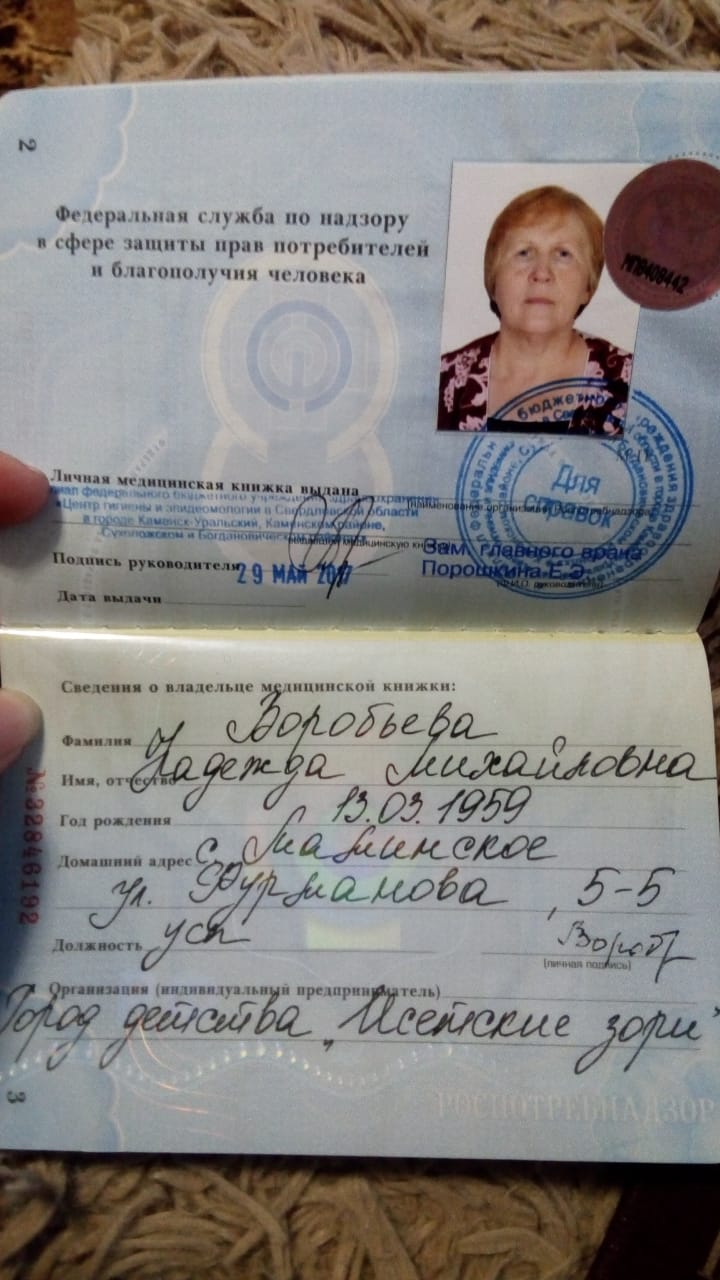 2
Федеральная служба по надзору
в сфере защиты прав потребителей
и благополучия человека
МПВ408442
Личная медицинская книжка выдана
федерального бюджетного учреждения здравоохранения
«Центр гигиены и эпидемиологии в Свердловской области
в городе Каменск-Уральский, Каменском районе,
Сухоложском и Богдановическом
(наименование организации Роспотребнадзора,
медицинскую книжку)
Для
справок
Зам. главного врача
Подпись руководителя
Порошкина Е.Э.
(Ф.И.О. руководителя)
29 МАЙ 2017
Дата выдачи
Сведения о владельце медицинской книжки:
Фамилия Воробьева
Имя, отчество Надежда Михайловна
Год рождения 13.03.1959
Домашний адрес с. Маминское
ул. Фурманова, 5-5
Должность Вороб
(личная подпись)
Организация (индивидуальный предприниматель)
Город детства "Исетские зори"
№322846192
3
РОСПОТРЕБНАДЗОР